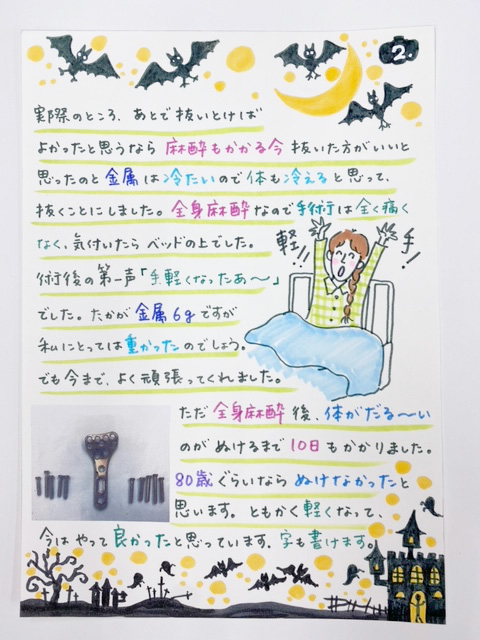 2.
実際のところ、あとで抜いとけば
よかったと思うなら麻酔もかかる今抜いた方がいいと
思ったのと金属は冷たいので体も冷えると思って、
抜くことにしました。全身麻酔なので手術は全く痛く
なく、気付いたらベッドの上でした。
軽!!
手!
術後の第一声「手軽くなったあ〜」
でした。たかが金属6gですが
私にとっては重かったのでしょう。
でも今まで、よく頑張ってくれました。
ただ全身麻酔後、体がだる〜い
のがぬけるまで10日もかかりました。
80歳ぐらいならぬけなかったと
思います。ともかく軽くなって、
今はやって良かったと思っています。字も書けます。